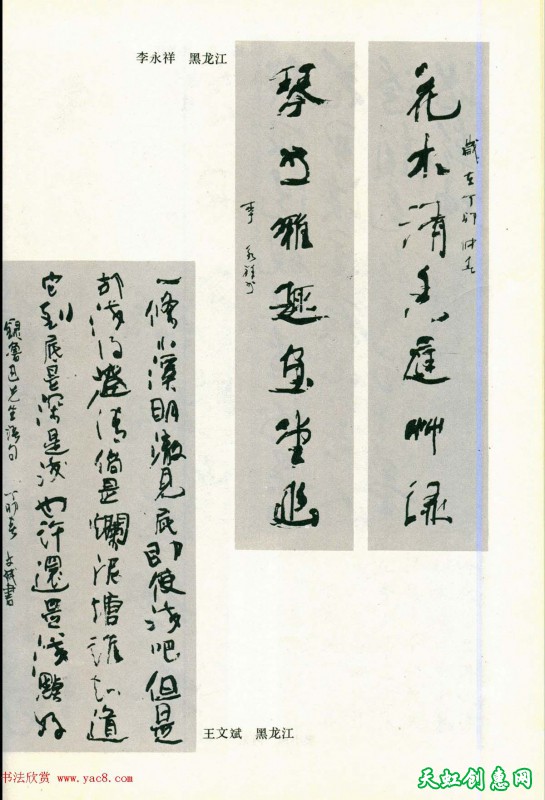 李永祥 黑龙江
花木清香庭艸绿
歲在丁卯
琴书雅趣画堂幽
李永祥书
一條小溪明澈見底即使浅吧但是
却浅得澄清倘是爛泥塘誰知道
它到底是深是浅也许還是浅點好
錄魯迅先生語句 丁卯春 文斌書
王文斌 黑龙江
书法欣赏 www.yac8.com
天虹创意网